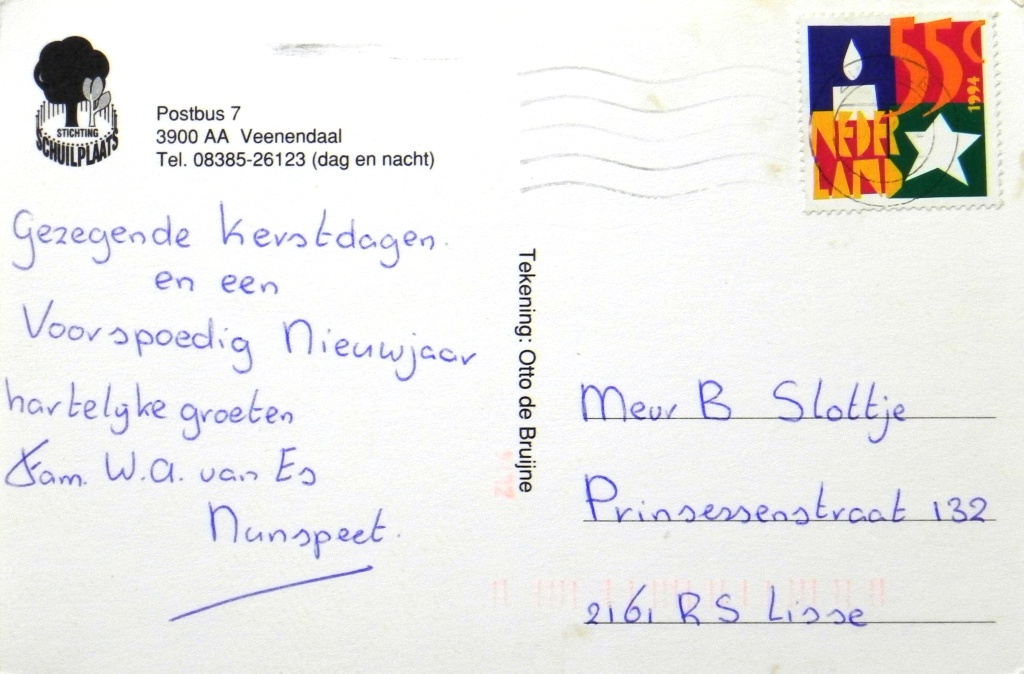 STICHTING
SCHUILPLAATS
Postbus 7
3900 AA Veenendaal
Tel. 08385-26123 (dag en nacht)
Gezegende Kerstdagen.
en een
Voorspoedig Nieuwjaar
hartelijke groeten
Fam. W.A. van Es
Nunspeet.
Tekening: Otto de Bruijne
55c
1994
NEDER
LAND
Mevr B Slottje
Prinsessenstraat 132
2161 RS Lisse